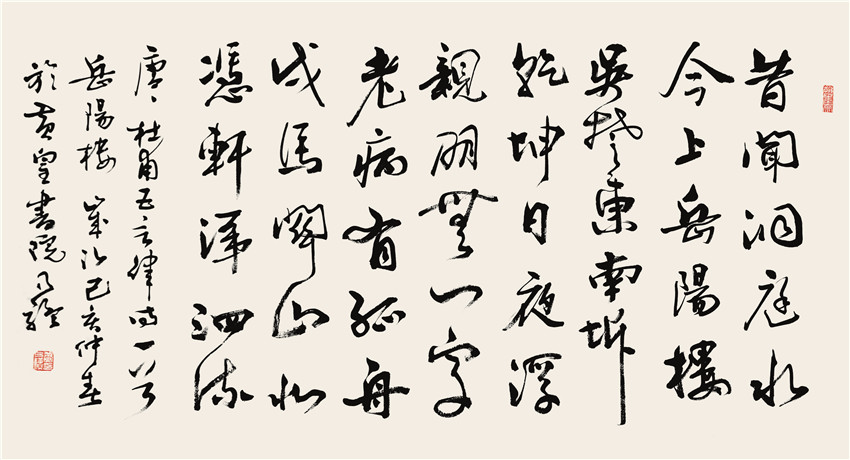 昔聞洞庭水
今上岳陽樓
吳楚東南坼
乾坤日夜浮
親朋無一字
老病有孤舟
戎馬關山北
憑軒涕泗流
唐、杜甫五言律詩一首
岳陽樓 歲次己亥仲春
於黃皇書院